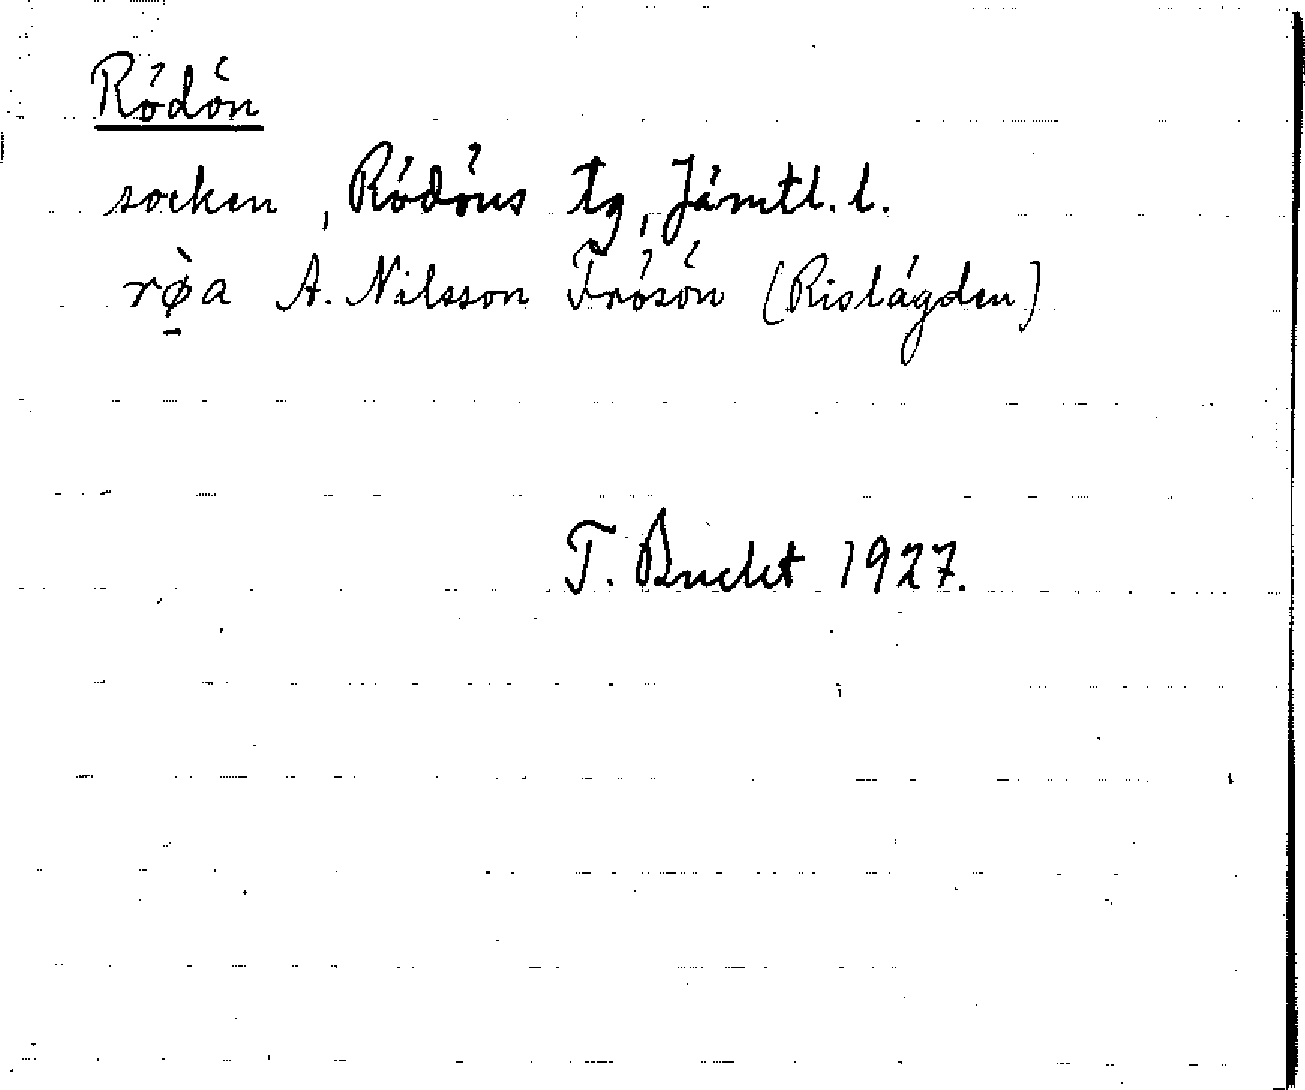 Rödön
socken, Rödöns tg, Jämtl. l.
rø̀a A. Nilsson Frösön (Rislägden)
T. Bucht 1927.